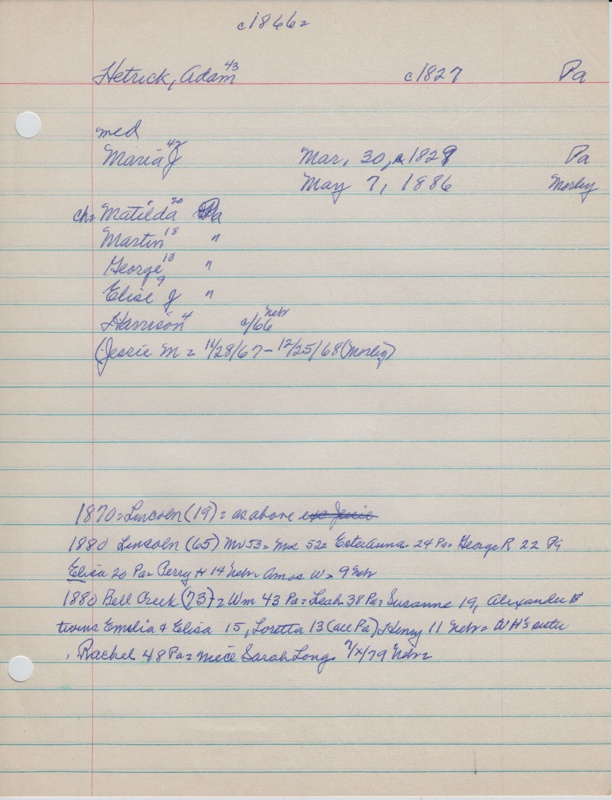 c1866=
Hetrick, Adam 43 c1827 Pa
med
Maria J 42 Mar, 30, 1829 Pa
May 7, 1886 Morley
ch= Matilda 20 Pa
Martin 18 "
George 13 "
Elise J 9 "
Harrison 4 c/66 Nebr
(Jessie M = 11/28/67 - 12/25/68 (Morley)
1870 = Lincoln (19) = as above exc Jessie
1880 Lincoln (65) Mv53= 52= 24 Pa= George R 22 Pa
Elisa 20 Pa= Perry H 14 Nebr= Amos W= 9 Nebr
1880 Bell Creek (73) = Wm 43 Pa= Leah 38 Pa= Susanna 19, Alexander
twins Emelia & Elisa 15, Loretta 13 (all Pa), Henry 11 Nebr= W H's sister
Rachel 48 Pa= niece Sarah Long 7/x/79 Nebr=